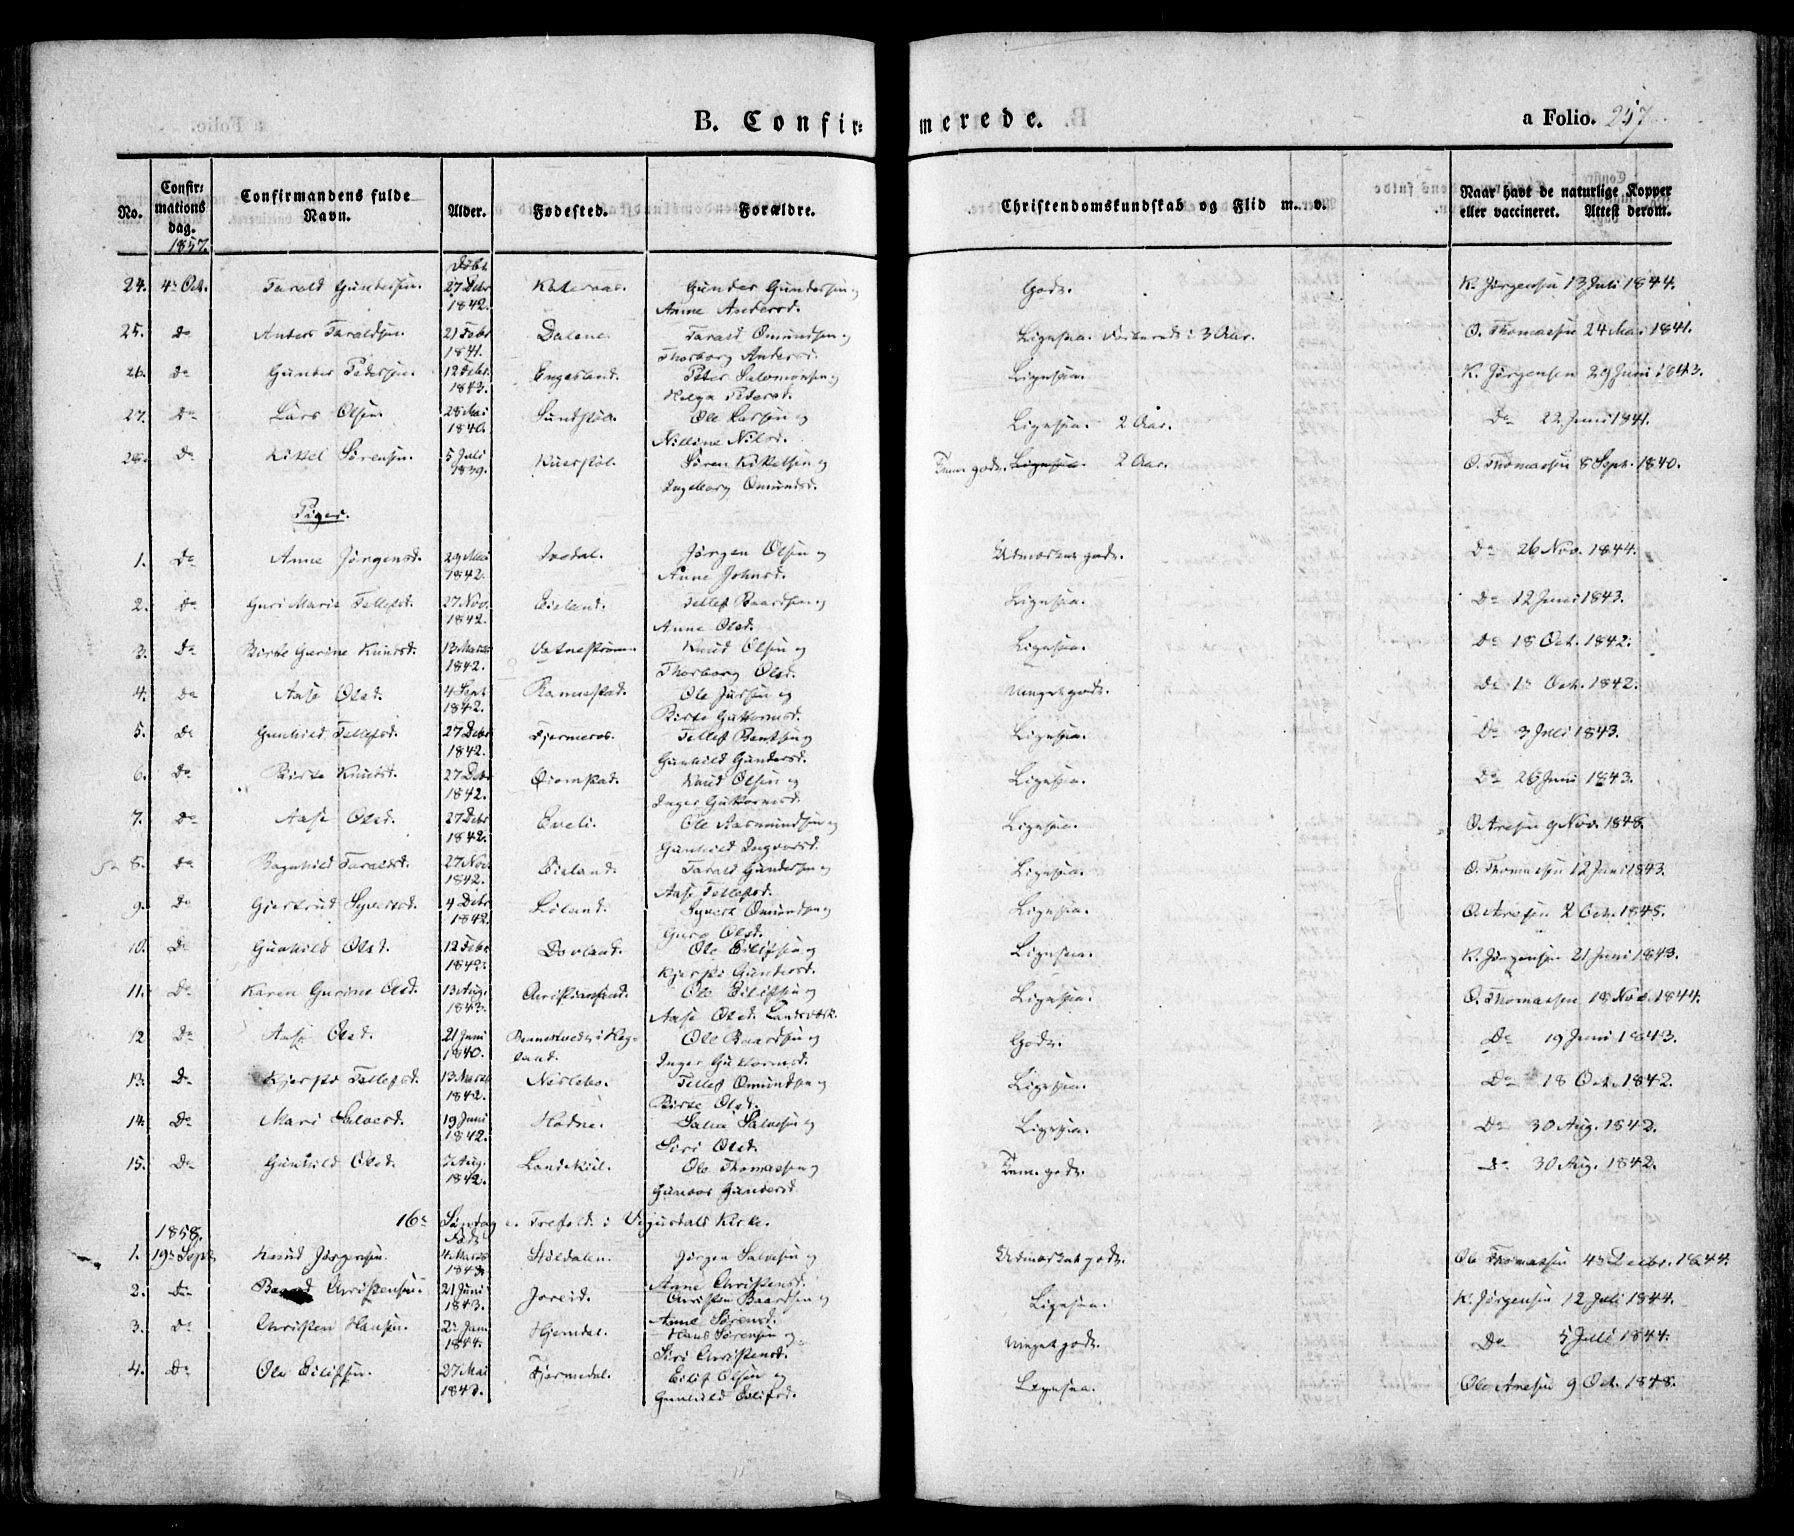 B. Confir: merede. a Folio. 257.
No. Confir: mations dag. Confirmandens fulde Navn. Alder. Fødested. Forældre. Christendomskundskab og Flid m. v. Naar havt de naturlige Kopper eller vaccineret. Attest derom.
1857.
24. 4de Oct. Tarald Gundersen. 27 Debr 1842. Gunder Gundersen og Godt. K. Jørgensen 13 Juli 1844.
Anne Andersd.
25. Do Anders Taraldsen. 21 Febr 1841. Dalene. Tarald Omundsen og Ligesaa. i 3 Aar. O. Thomassen 24 Mai 1841.
Thorborg Andersd.
26. Do Gunder Pedersen. 12 Febr. 1843. Engesland. Peter Salomonsen og Ligesaa. K. Jørgensen 29 Juni 1843.
Helga Pedersd.
27. Do Lars Olsen. 28 Mai 1840. Sundstøl. Ole Larsen og Ligesaa. 2 Aar. Do 22 Juni 1841.
Nilline Nilsd.
28. Do Kittel Sørensen. 5 Juli 1839. Søren Kittelsen og Temm. godt. Ligesaa. 2 Aar. O. Thomassen 8 Sept. 1840.
Ingeborg Omundsd.
Piger.
1. Do Anne Jørgensd. 29 Mai 1842. Ivedal. Jørgen Olsen og Udmærket godt. Do 26 Nov. 1844.
Anne Johnsd.
2. Do Guri Marie Tellefsd. 27 Nov. 1842. Eieland. Tellef Baardsen og Ligesaa. Do 12 Juni 1843.
Anne Olsd.
3. Do Birte Gurine Knudsd. 13 Marts 1842. Vatnestrøm. Knud Olsen og Ligesaa. Do 18 Oct. 1842.
Thorborg Olsd.
4. Do Aase Olsd. 4 Sept 1842. Ramnestad. Ole Jursen og Meget godt. Do 1ste Oct. 1842.
Birte Guttormsd.
5. Do Gunhild Tellefsd. 27 Debr 1842. Fjermeros. Tellef Bentsen og Ligesaa. Do 3 Juli 1843.
Gunhild Gundersd.
6. Do Birte Knudsd. 27 Debr 1842. Knud Olsen og Ligesaa. Do 26 Juni 1843.
Inger Guttormsd.
7. Do Aase Olsd. 27 Debr 1842. Eveli. Ole Aasmundsen og Ligesaa. O. Aresen 9 Nov. 1848.
Gunhild Ingvorsd.
8. Do Ragnhild Taraldsd. 27 Nov. 1842. Eieland. Tarald Gundersen og Ligesaa. O. Thomassen 12 Juni 1843.
Aase Tellefsd.
9. Do Gjertrud Syvertsd. 4 Debr 1842. Løland. Syvert Omundsen og Ligesaa. O. Aresen 2 Oct. 1848.
Guro Olsd.
10. Do Gunhild Olsd. 12 Febr. 1842. Dovland. Ole Eilifsen og Ligesaa. K. Jørgensen 21 Juni 1843.
Kjersti Gundersd.
11. Do Karen Gurine Olsd. 13 Aug. 1843. Christiansand. Ole Eilifsen og Ligesaa. O. Thomassen 18 Nov. 1844.
Aase Olsd. Landsværk.
12 Do Aase Olsd. 21 Juni 1840. Ole Baardsen og Godt. Do 19 Juni 1843.
Inger Guttormsd.
13. Do Kjersti Tellefsd. 13 Marts 1842. Tellef Omundsen og Ligesaa. Do 18 Oct. 1842.
Birte Olsd.
14. Do Mari Salvesd. 19 Juni 1842. Hodne. Salve Salvesen og Ligesaa. Do 30 Aug. 1842.
Siri Olsd.
15. Do Gunhild Olsd. Aug. 1842. Ole Thomassen og Temm. godt. Do 30 Aug. 1842.
Gunvor Gundersd.
16de Søndag e. Trefold. i Vegusdals Kirke.
1858.
1. 19de Sept Knud Jørgensen. 4 Marts 1843. Støldalen. Jørgen Salvesen og Udmærket godt. Ole Thomassen 4de Decbr. 1844.
Anne Christensd.
2. Do Baard Christensen. 21 Juni 1843. Joreid. Christen Baardsen og Ligesaa. K. Jørgensen 12 Juli 1844.
Anne Sørensd.
3. Do Christen Hansen. 2de 1844. Hjemdal. Hans Sørensen og Meget godt. Do 5 Juli 1844.
Siri Christensd.
4. Do Ole Eilifsen. 27 Mai 1843. Fjermedal. Eilif Olsen og Ligesaa. Ole Aresen 9 Oct. 1848.
Gunhild Eilifsd.